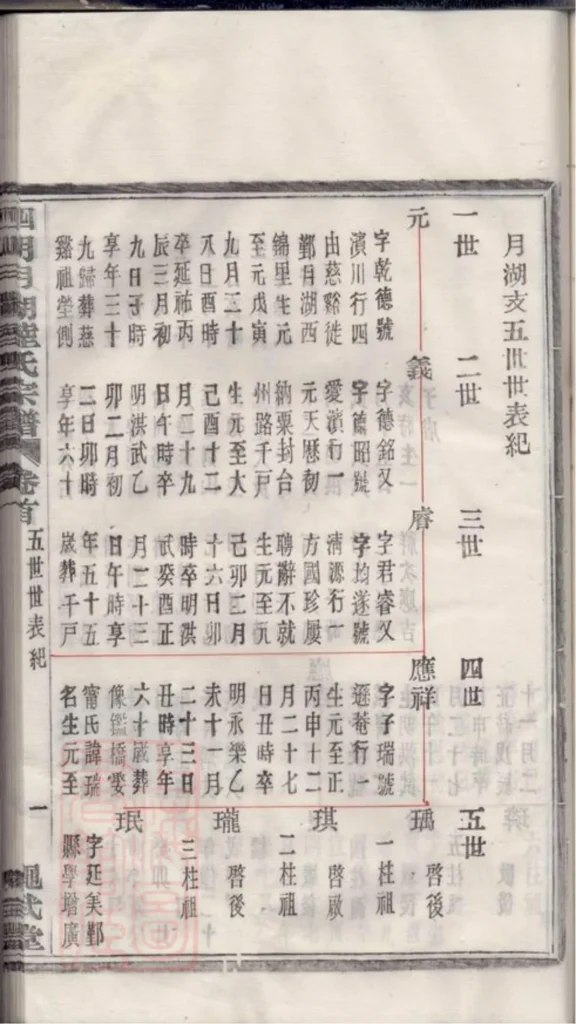 月湖支五世世表紀
一世
二世
三世
四世
五世
元
字乾德號
濱川行四
由慈谿徙
鄞月湖西
錦里生元
至元戊寅
九月二十
八日酉時
卒延祐丙
辰三月初
九日子時
享年三十
九歸葬慈
谿祖塋側
義
字德銘又
字德昭號
愛濱行一
元天曆初
納粟封台
州路千戶
生元至大
己酉十二
月二十九
日午時卒
明洪武乙
卯二月初
二日卯時
享年六十
睿
字君睿又
字均遂號
清源行一
方國珍屢
聘辭不就
生元至元
己卯二月
十六日卯
時卒明洪
武癸酉正
月二十三
日午時享
年五十五
歲葬千戶
應祥
字子瑞號
遯菴行一
生元至正
丙申十二
月二十七
日丑時卒
明永樂乙
未十一月
二十三日
丑時享年
六十歲葬
像鑑橋娶
甯氏諱瑞
名生元至
瑀
啓後
一柱祖
琪
啓
二柱祖
瓏
啓後
三柱祖
珉
字延美鄞
縣學增廣
四明月湖陸氏宗譜
卷首
五世世表紀
一
堂